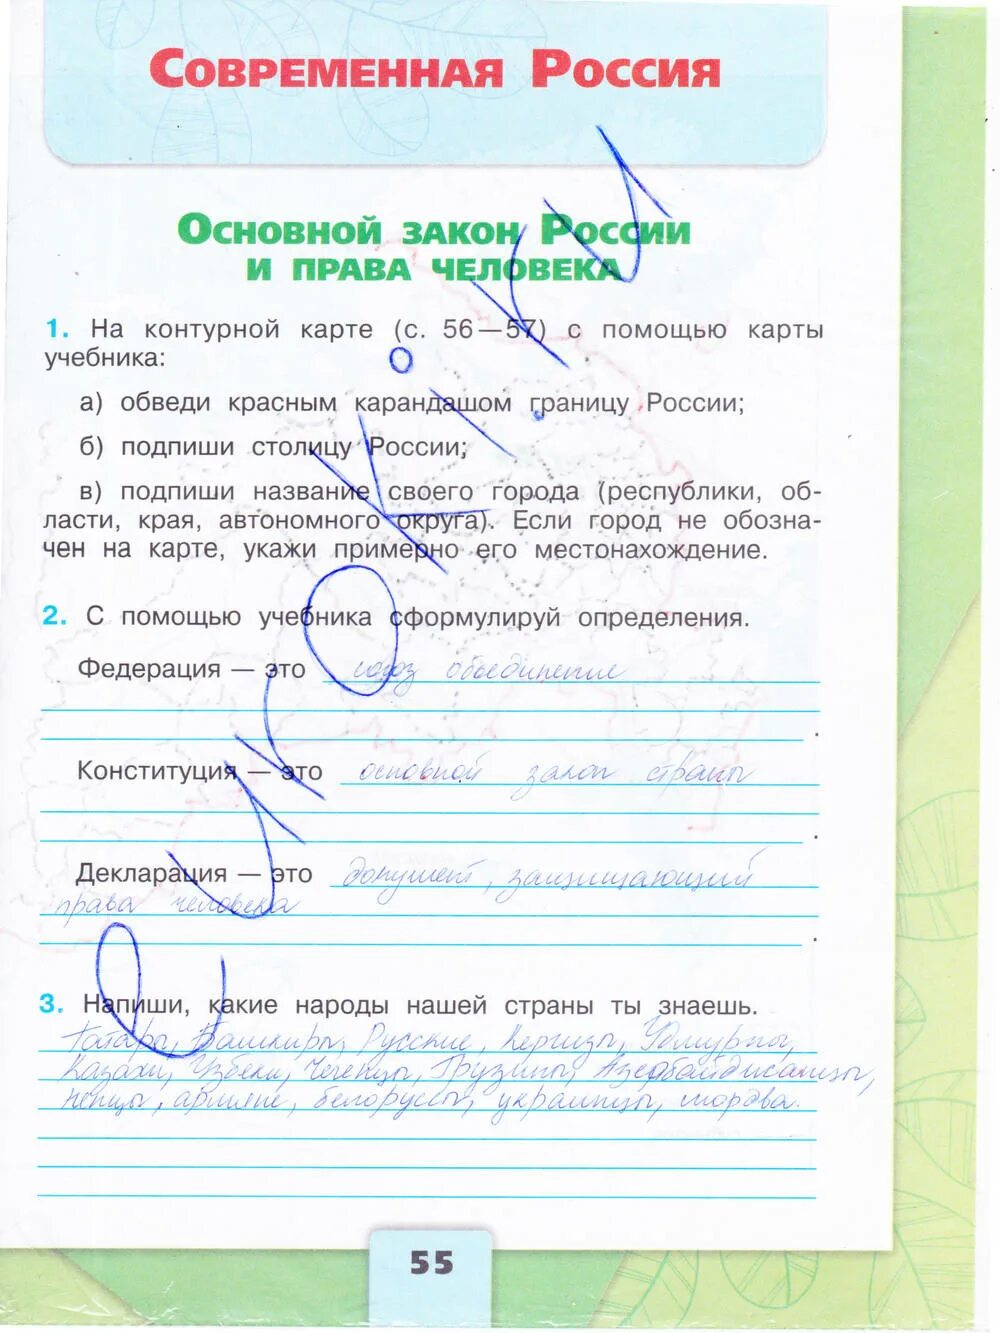 СОВРЕМЕННАЯ РОССИЯ
ОСНОВНОЙ ЗАКОН РОССИИ
И ПРАВА ЧЕЛОВЕКА
1. На контурной карте (с. 56—57) с помощью карты
учебника:
а) обведи красным карандашом границу России;
б) подпиши столицу России;
в) подпиши название своего города (республики, об-
ласти, края, автономного округа). Если город не обозна-
чен на карте, укажи примерно его местонахождение.
2. С помощью учебника сформулируй определения.
Федерация — это союз объединение
.
Конституция — это основной закон страны
.
Декларация — это документ, защищающий
права человека
.
3. Напиши, какие народы нашей страны ты знаешь.
Татары, Башкиры, Русские, Киргизы, Удмурты,
Казахи, Узбеки, Чеченцы, Грузины, Азербайджанцы,
ненцы, армяне, белоруссы, украинцы, мордва.
55